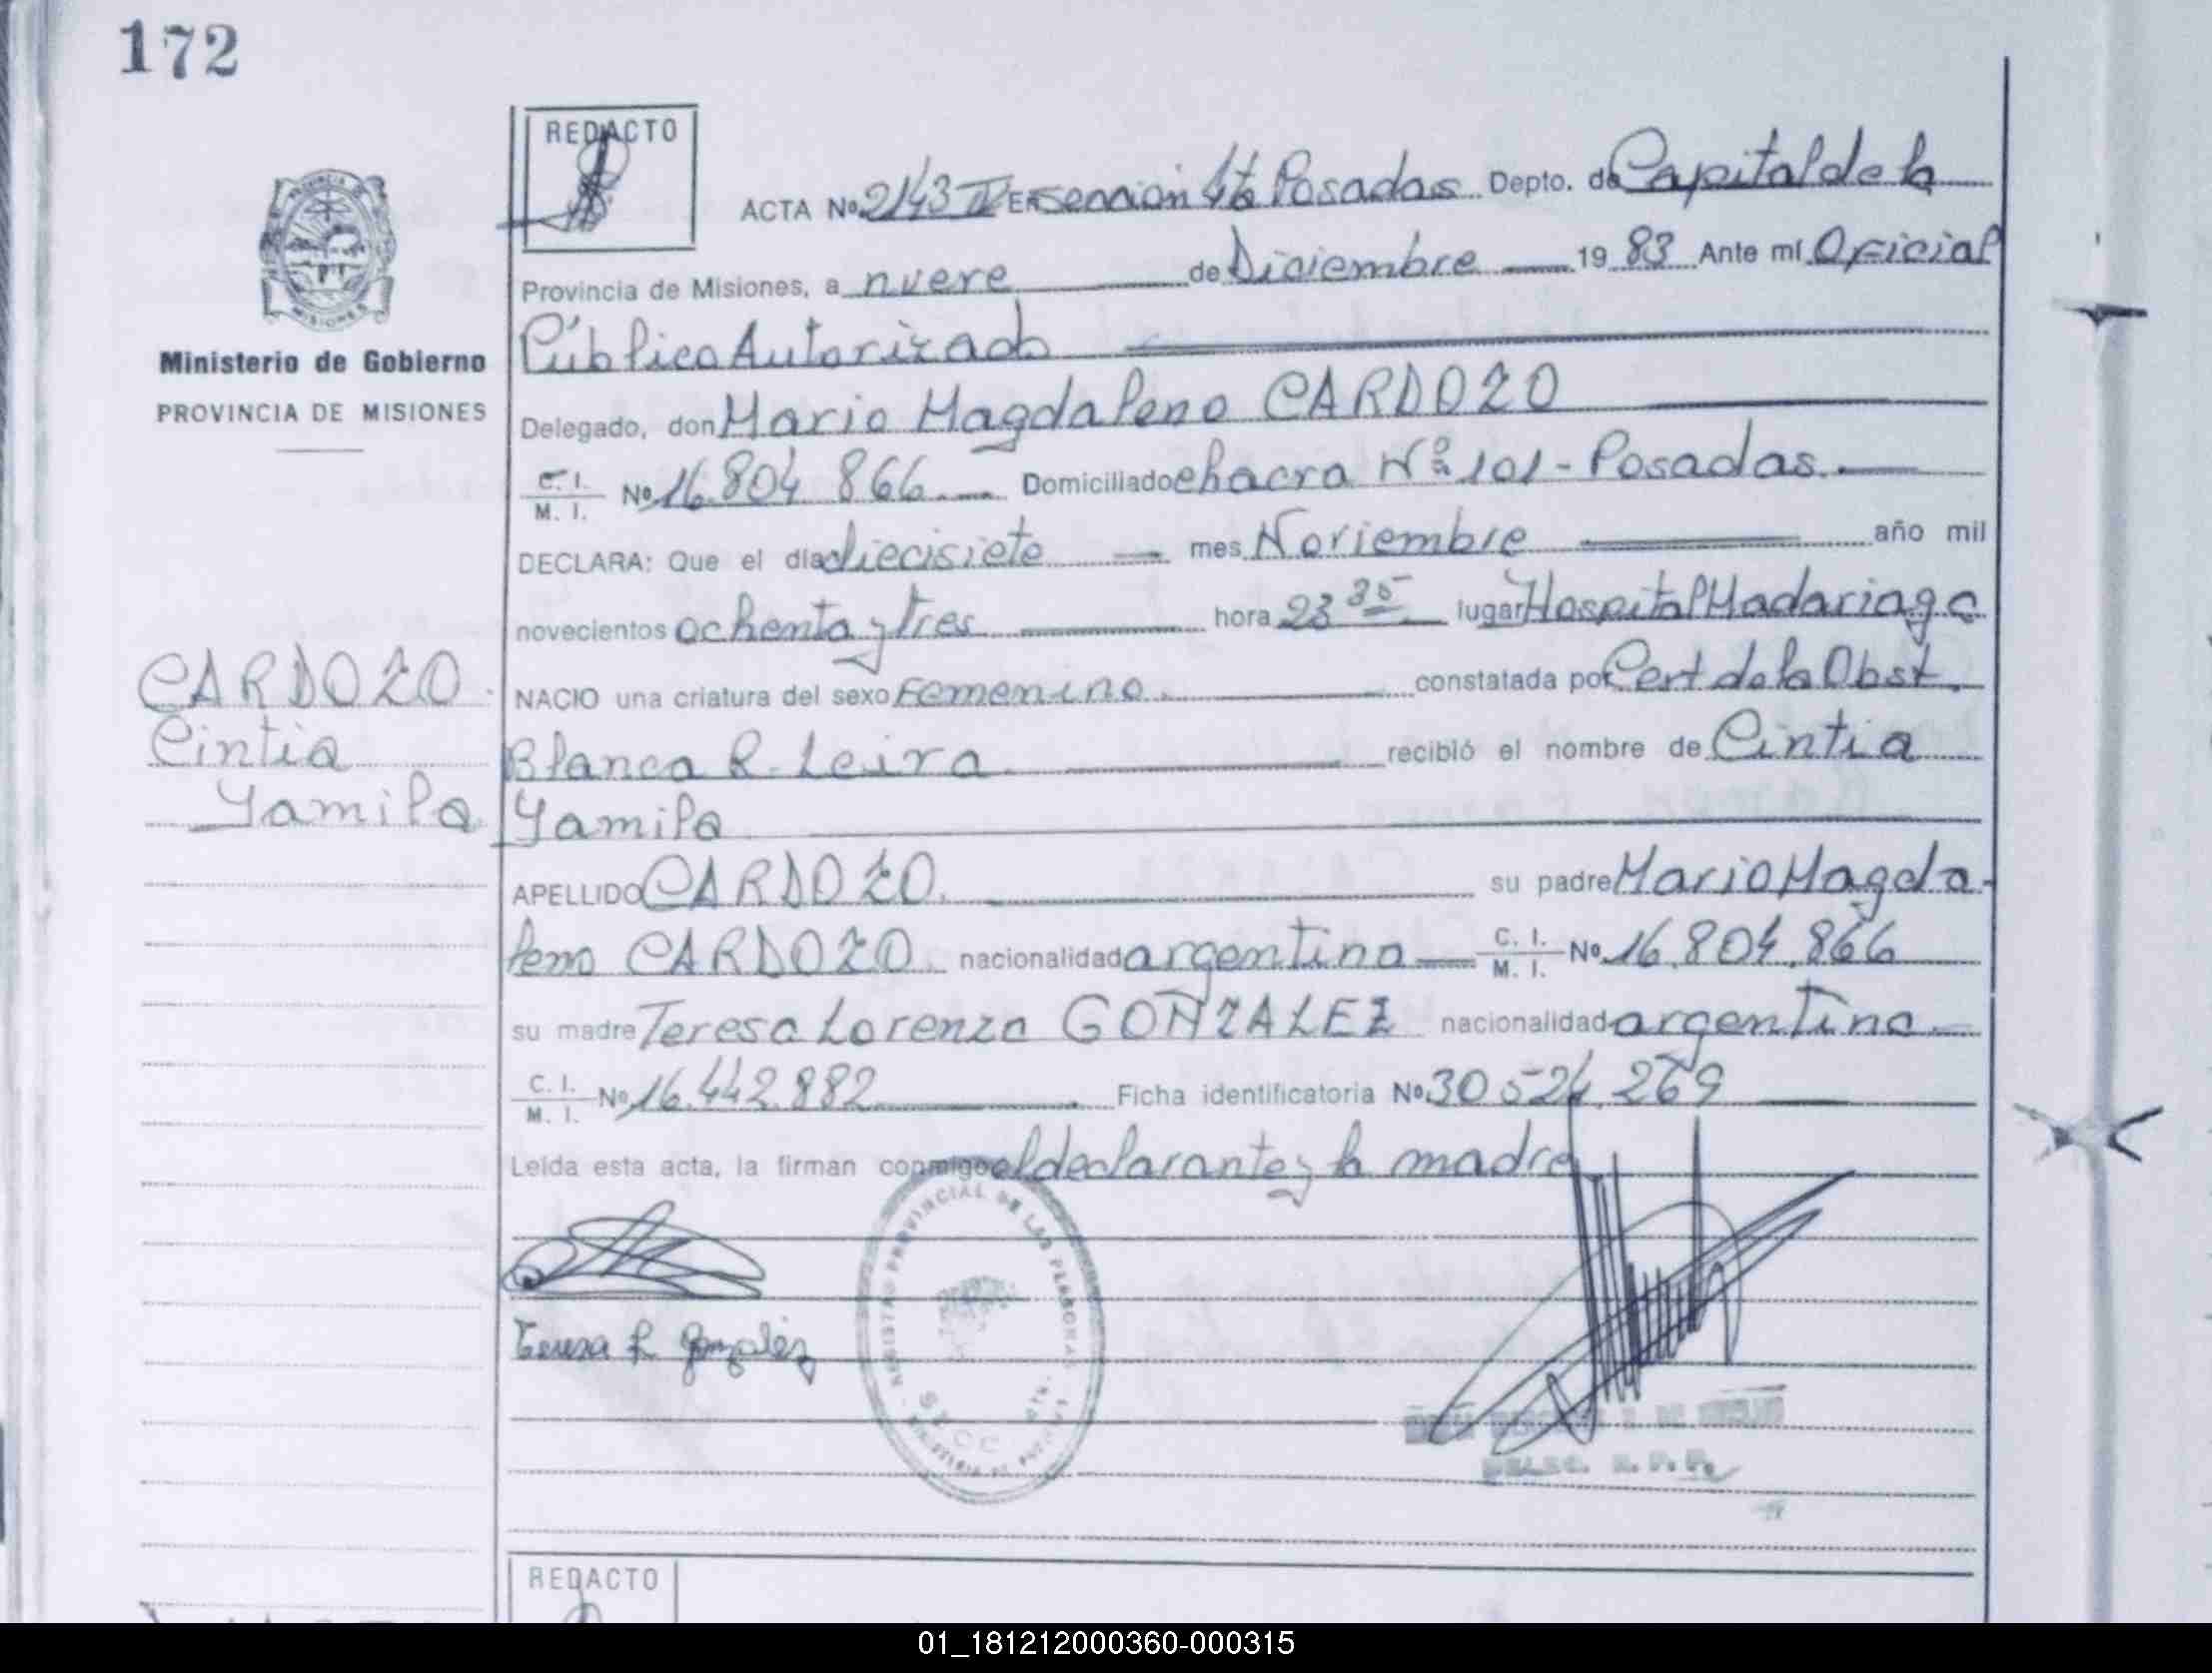 172
REDACTO
ACTA Nº 2143 IV EN sección 4ta Posadas Depto. de Capital de la
Provincia de Misiones, a nueve de Diciembre 19 83 Ante mí Oficial
Público Autorizado
Ministerio de Gobierno
PROVINCIA DE MISIONES
Delegado, don Mario Magdaleno CARDOZO
C. I. M. I. Nº 16.804 866 Domiciliado chacra Nº 101 - Posadas.
DECLARA: Que el día diecisiete mes Noviembre año mil
novecientos ochenta y tres hora 23 35 lugar Hospital Madariaga
CARDOZO
Cintia
Yamila
NACIO una criatura del sexo Femenino. constatada por Cert de la Obst.
Blanca R. Leiva recibió el nombre de Cintia
Yamila
APELLIDO CARDOZO. su padre Mario Magda-
leno CARDOZO nacionalidad argentina C. I. M. I. Nº 16.804.866
su madre Teresa Lorenza GONZALEZ nacionalidad argentina
C. I. M. I. Nº 16.442.882 Ficha identificatoria Nº 30 524.269
Leída esta acta, la firman conmigo el declarante y la madre
REGISTRO PROVINCIAL DE LAS PERSONAS
Teresa L González
DELEG. R. P. P.
REDACTO
01_181212000360-000315